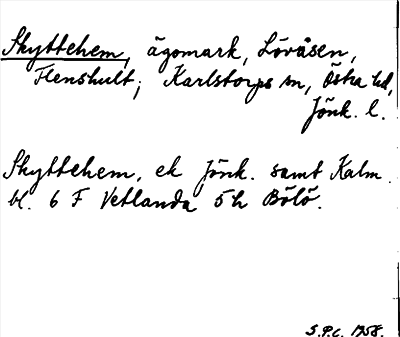 Skyttehem, ägomark, Lövåsen,
Flenshult; Karlstorps sn, Östra hd,
Jönk. l.
Skyttehem, ek Jönk. samt Kalm.
bl. 6 F Vetlanda 5 h Bölö.
S.P.C. 1958.